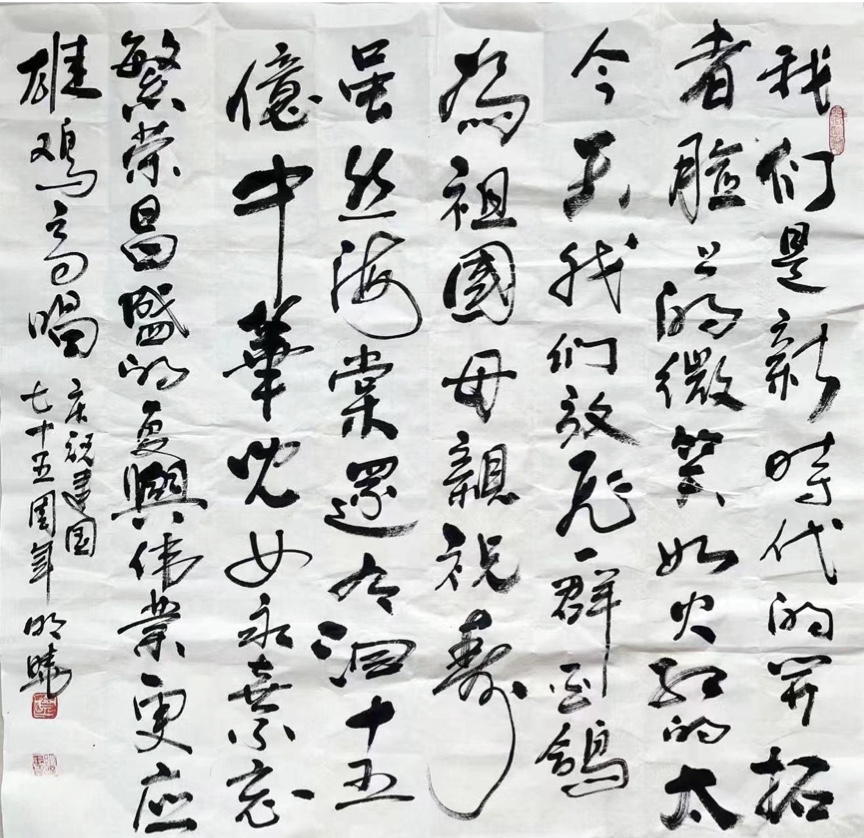 我们是新时代的开拓
者脸上的微笑如火红的太
今天我们放飞一群白鸽
为祖國母親祝寿
虽然海棠還有泪十五
億中華児女永志不忘
繁荣昌盛的复興伟業更应
雄鸡高唱
庆祝建国
七十五周年 明